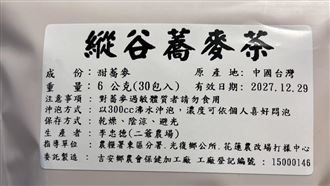 縱谷蕎麥茶
成　份：甜蕎麥　原 產 地：中國台灣
重　量：6 公克(30包入)　有效日期：2027.12.29
注意事項：對蕎麥過敏體質者請勿食用
沖泡方式：以300cc沸水沖泡，濃度可依個人喜好悶泡
保存方式：乾燥、陰涼、避光
生 產 者：李志德(二爺農場)
指導單位：農糧署東區分署、光復鄉公所、花蓮農改場打樣中心
委託製造：吉安鄉農會保健加工廠 工廠登記編號：15000146